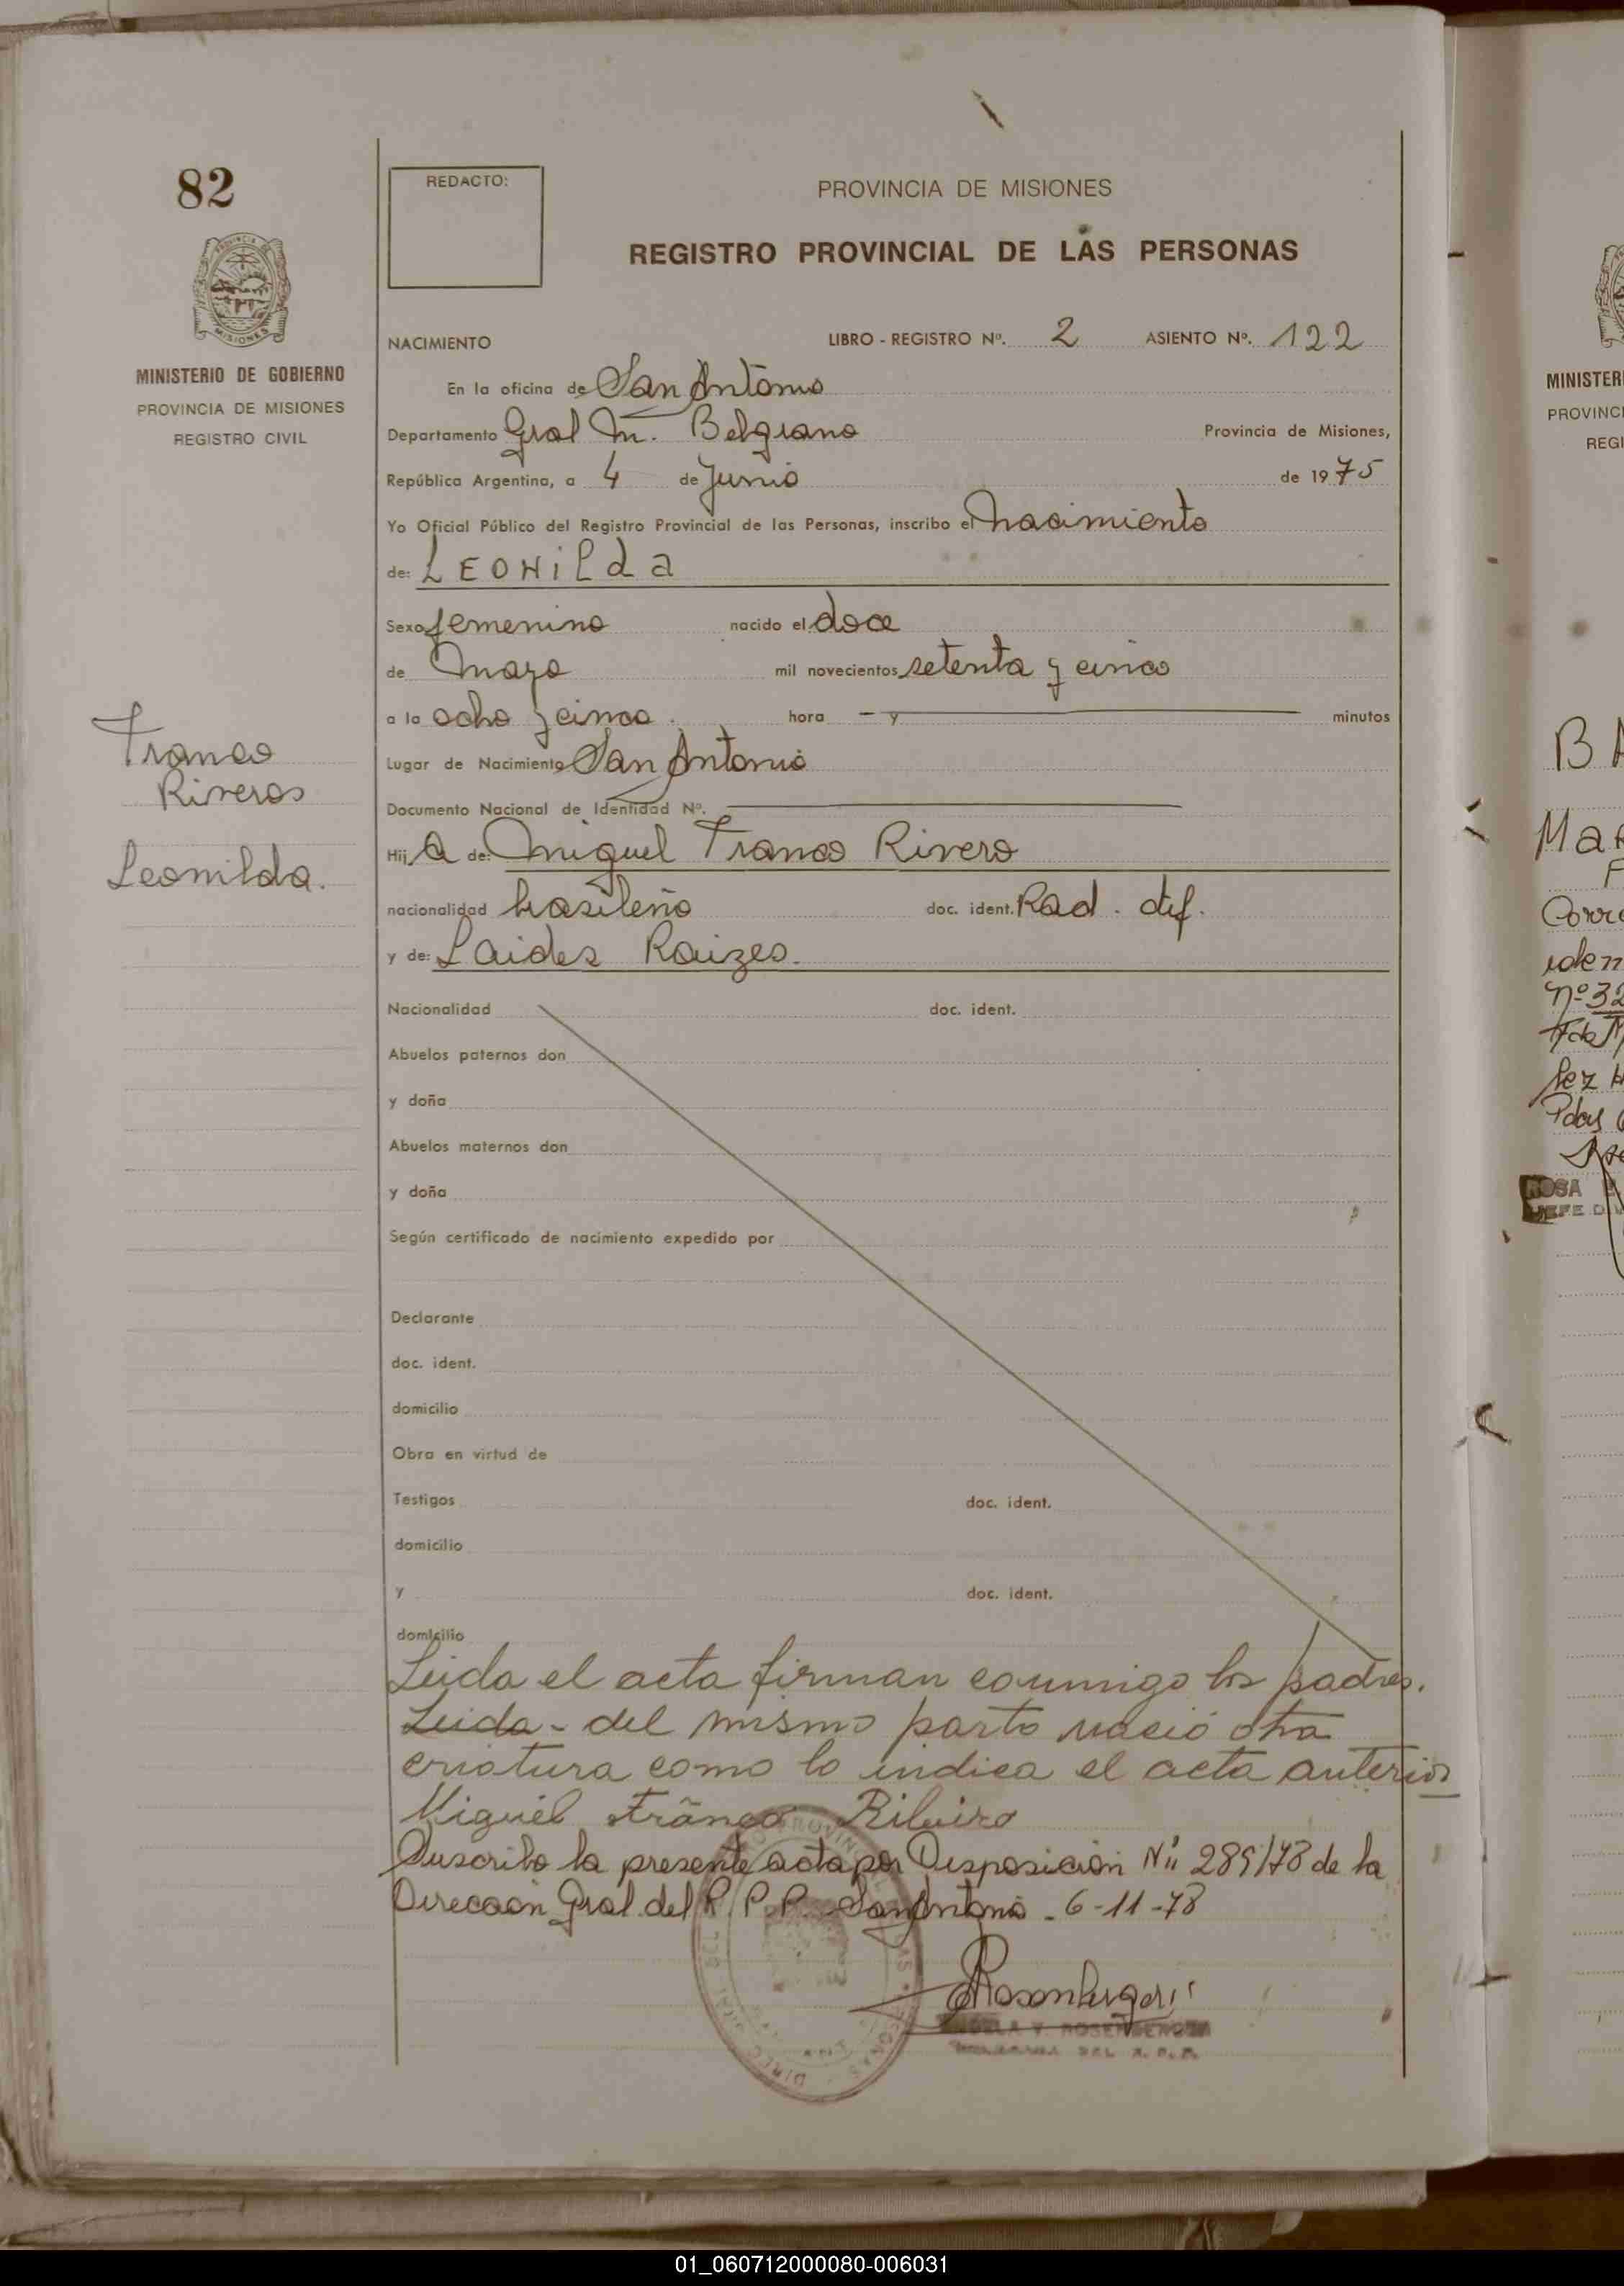 82
MINISTERIO DE GOBIERNO
PROVINCIA DE MISIONES
REGISTRO CIVIL
Franco
Riveros
Leonilda.
REDACTO:
PROVINCIA DE MISIONES
REGISTRO PROVINCIAL DE LAS PERSONAS
NACIMIENTO LIBRO - REGISTRO Nº. 2 ASIENTO Nº. 122
En la oficina de San Antonio
Departamento Gral M. Belgrano Provincia de Misiones,
República Argentina, a 4 de Junio de 1975
Yo Oficial Público del Registro Provincial de las Personas, inscribo el nacimiento
de: LEONILda
Sexo femenino nacido el doce
de mayo mil novecientos setenta y cinco
a la ocho y cinco. hora - y minutos
Lugar de Nacimiento San Antonio
Documento Nacional de Identidad Nº.
Hij a de: Miguel Franco Rivero
nacionalidad brasileño doc. ident. Rad. def.
y de: Laides Raizes.
Nacionalidad doc. ident.
Abuelos paternos don
y doña
Abuelos maternos don
y doña
Según certificado de nacimiento expedido por
Declarante
doc. ident.
domicilio
Obra en virtud de
Testigos doc. ident.
domicilio
y doc. ident.
domicilio
Leida el acta firman conmigo los padres.
Leida - del mismo parto nació otra
criatura como lo indica el acta anterior
Miguel Franco Ribeiro
Suscribo la presente acta por Disposición Nº 289/78 de la
Direccion Gral. del R.P.P. San Antonio - 6-11-78
MINISTER
PROVINC
REGI
B
Ma
Corre
iden
nº 32
Pdas
ROSA
JEFE D
01_060712000080-006031